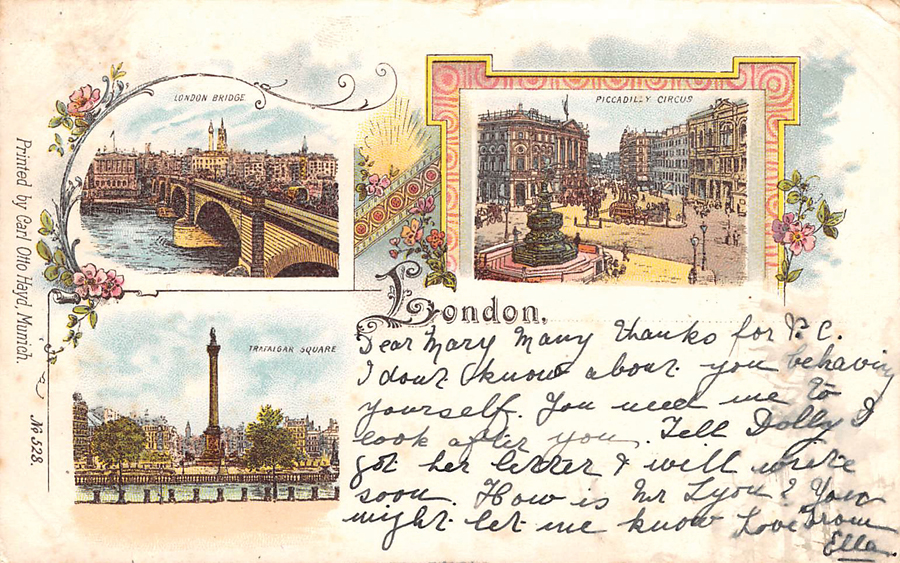 LONDON BRIDGE
PICCADILLY CIRCUS
TRAFALGAR SQUARE
London.
Dear Mary Many thanks for P.C.
I dont know about you behaving
yourself. You need me to
look after you. Tell Dolly I
got her letter & will write
soon. How is Mr Lyon? You
might let me know Love from
Ella.
Printed by Carl Otto Hayd, Munich.
No 528.